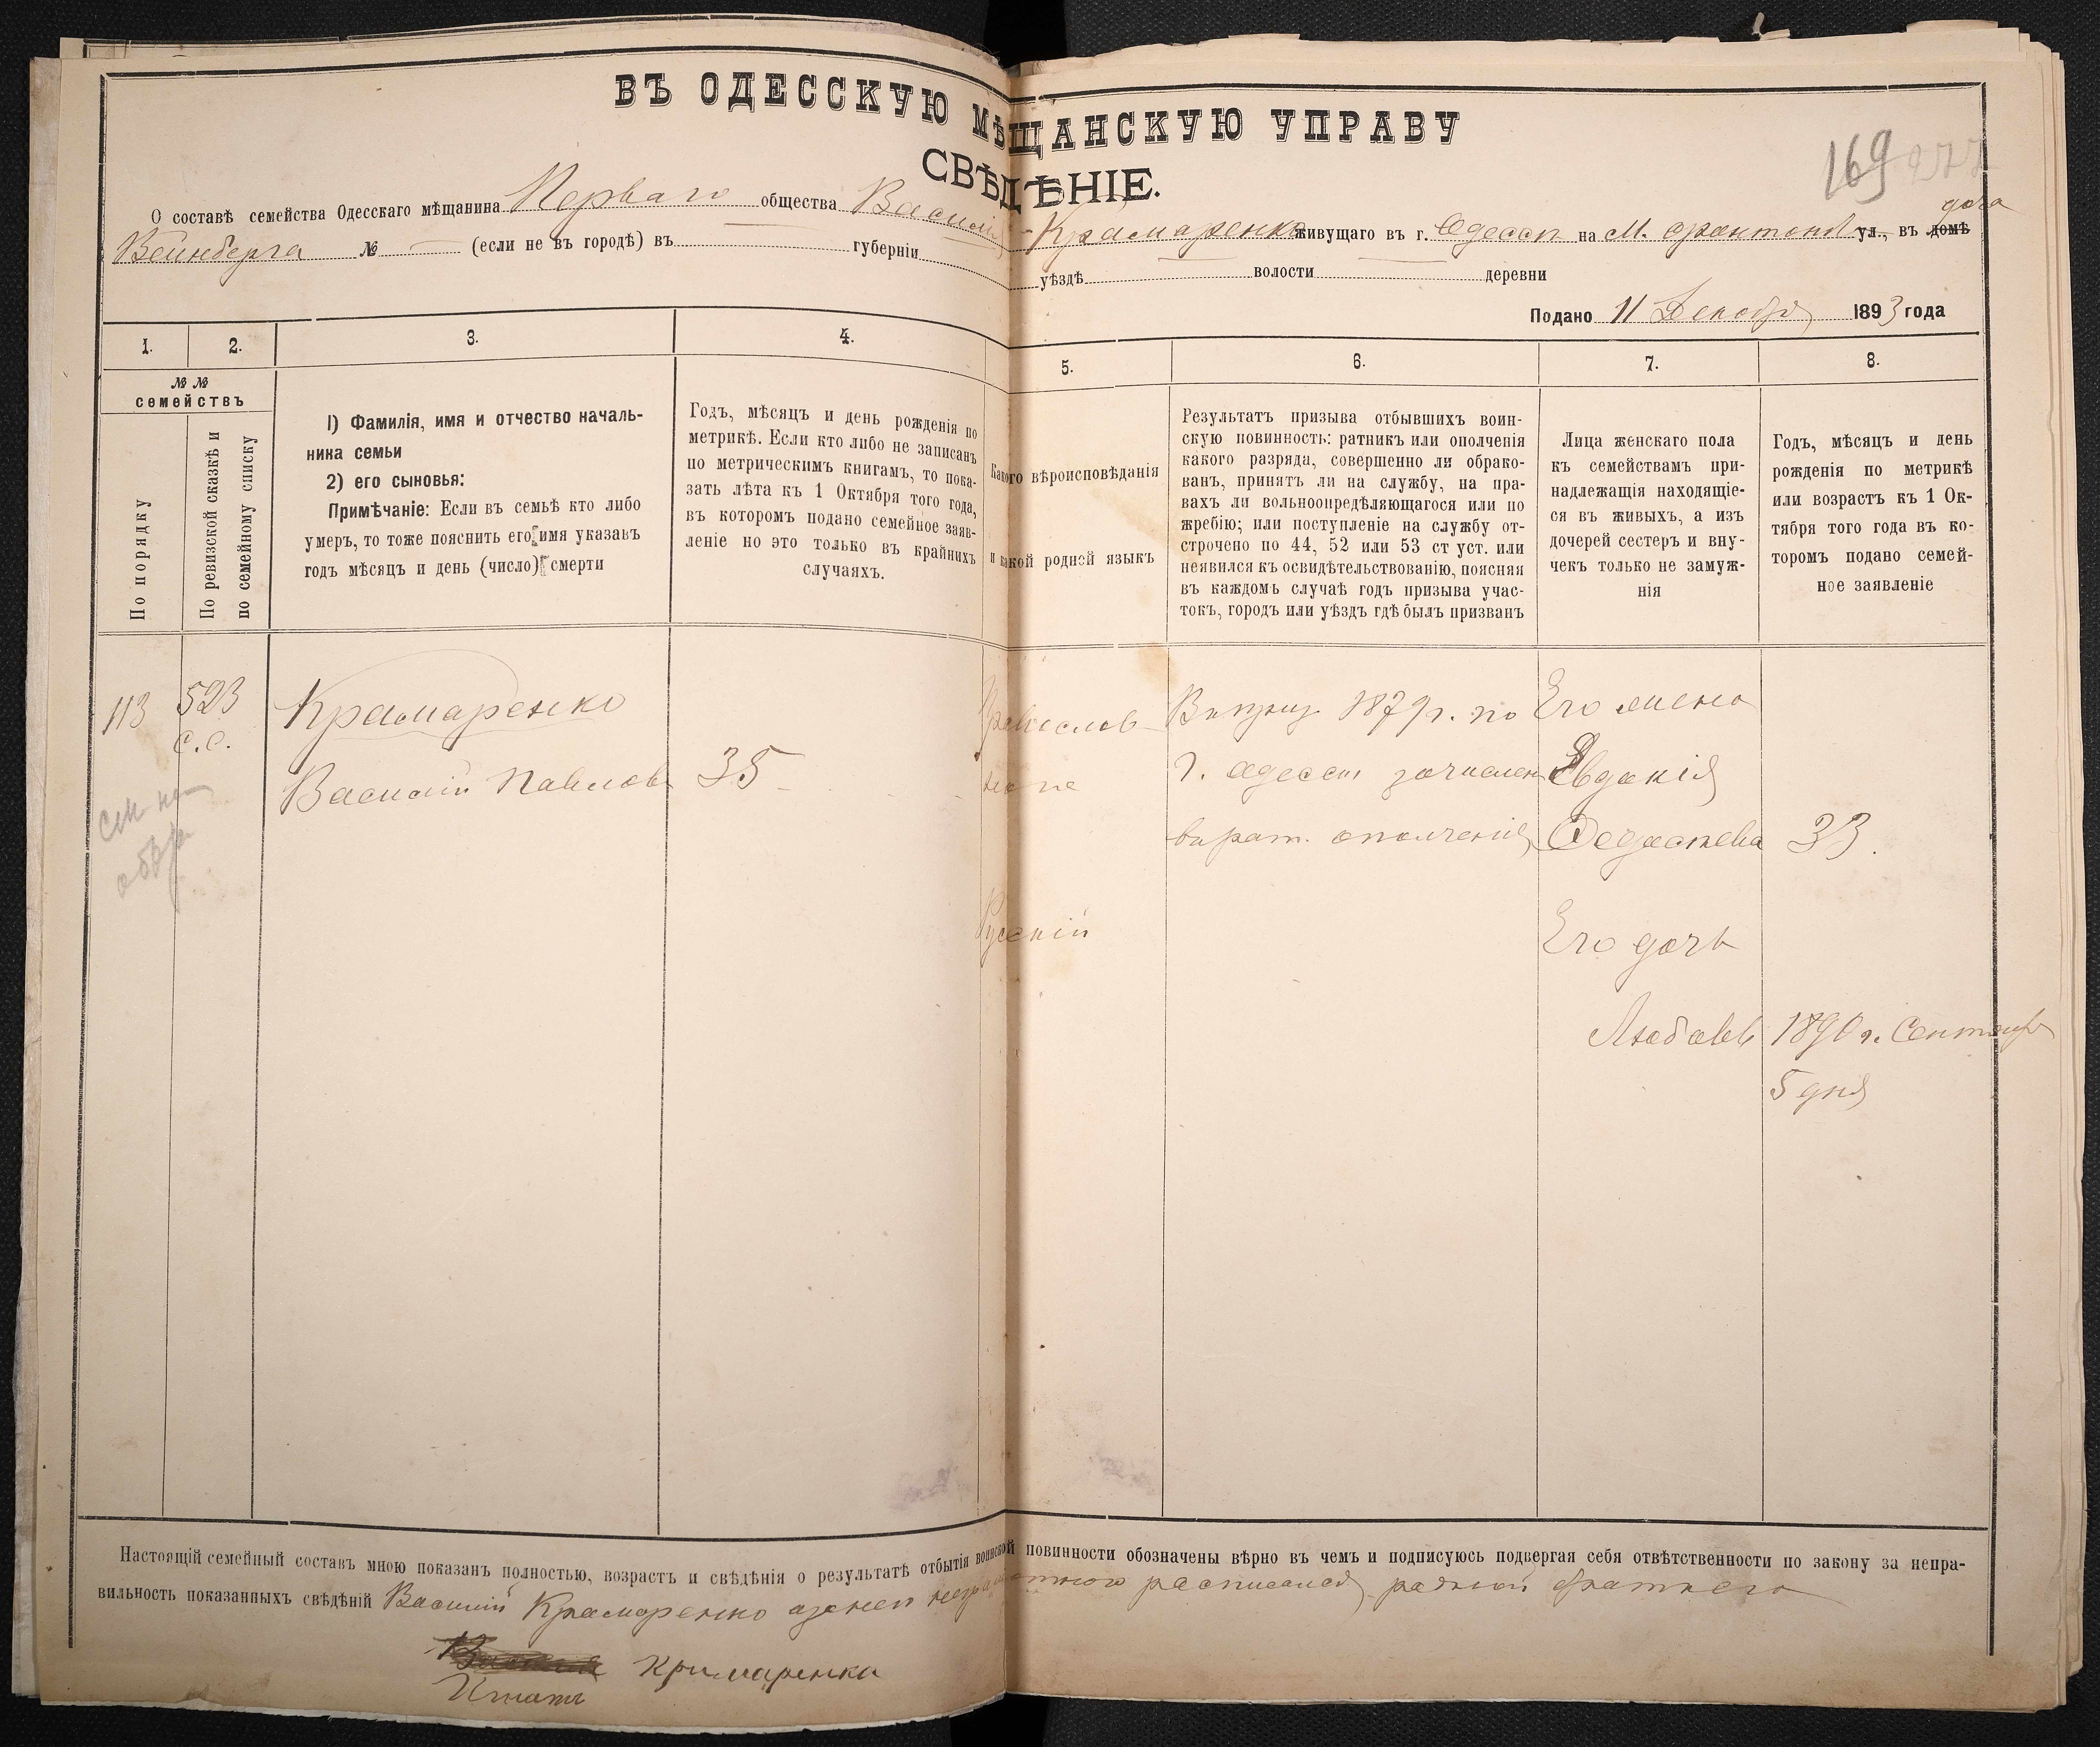 ВЪ ОДЕССКУЮ МѢЩАНСКУЮ УПРАВУ
СВѢДѢНІЕ.
169 277
О составѣ семейства Одесскаго мѣщанина Перваго общества Василій Крамаренко живущаго въ г. Одессѣ на М. ул., въ домѣ
дача
Вейнберга № — (если не въ городѣ) въ губерніи уѣздѣ волости деревни
Подано 11 Декабря 1893 года
1. 2. 3. 4. 5. 6. 7. 8.
№ №
семействъ
По порядку
По ревизской сказкѣ и
по семейному списку
1) Фамилія, имя и отчество началь-
ника семьи
2) его сыновья:
Примѣчаніе: Если въ семьѣ кто либо
умеръ, то тоже пояснить его имя указавъ
годъ мѣсяцъ и день (число) смерти
Годъ, мѣсяцъ и день рожденія по
метрикѣ. Если кто либо не записанъ
по метрическимъ книгамъ, то пока-
зать лѣта къ 1 Октября того года,
въ которомъ подано семейное заяв-
леніе но это только въ крайнихъ
случаяхъ.
Какого вѣроисповѣданія
и какой родной языкъ
Результатъ призыва отбывшихъ воин-
скую повинность: ратникъ или ополченія
какого разряда, совершенно ли обрако-
ванъ, принятъ ли на службу, на пра-
вахъ ли вольноопредѣляющагося или по
жребію; или поступленіе на службу от-
строчено по 44, 52 или 53 ст уст. или
неявился къ освидѣтельствованію, поясняя
въ каждомъ случаѣ годъ призыва учас-
токъ, городъ или уѣздъ гдѣ былъ призванъ
Лица женскаго пола
къ семействамъ при-
надлежащія находящіе-
ся въ живыхъ, а изъ
дочерей сестеръ и вну-
чекъ только не замуж-
нія
Годъ, мѣсяцъ и день
рожденія по метрикѣ
или возрастъ къ 1 Ок-
тября того года въ ко-
торомъ подано семей-
ное заявленіе
113
523
с.с.
см на
обор
Крамаренко
Василій Павловъ
35
Православ-
ное
Русскій
Въ призы 1879 г. по
г. Одессѣ зачисленъ
въ рат. ополченія
Его жена
Евдокія
Федосѣева
33.
Его дочь
Любовь
1890 г. Сентября
5 дня
Настоящій семейный составъ мною показанъ полностью, возрастъ и свѣдѣнія о результатѣ отбытія воинской повинности обозначены вѣрно въ чемъ и подписуюсь подвергая себя отвѣтственности по закону за непра-
вильность показанныхъ свѣдѣній Василій Крамаренко азанего неграмотного росписался родной братъ его
Крамаренка
Игнатъ